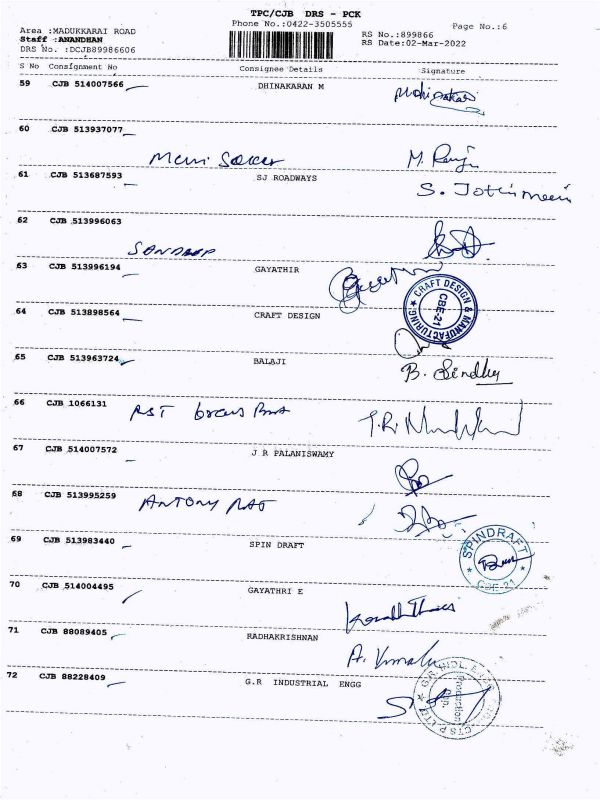 TPC/CJB DRS - PCK
Phone No.:0422-3505555
Page No.:6
Area :MADUKKARAI ROAD
Staff :ANANDHAN
DRS No. :DCJB89986606
RS No.:899866
RS Date:02-Mar-2022
S No Consignment No Consignee Details Signature
59 CJB 514007566 DHINAKARAN M
60 CJB 513937077
M. Ranju
61 CJB 513687593 SJ ROADWAYS
62 CJB 513996063
SANDEEP
63 CJB 513996194 GAYATHIR
CRAFT DESIGN & MANUFACTURING CBE-21
64 CJB 513898564 CRAFT DESIGN
65 CJB 513963724 BALAJI
B. Sindhu
66 CJB 1066131
67 CJB 514007572 J R PALANISWAMY
68 CJB 513995259 ANTONY RAJ
69 CJB 513983440 SPIN DRAFT
SPINDRAFT CBE-21
70 CJB 514004495 GAYATHRI E
71 CJB 88089405 RADHAKRISHNAN
A. Vimala
72 CJB 88228409 G.R INDUSTRIAL ENGG